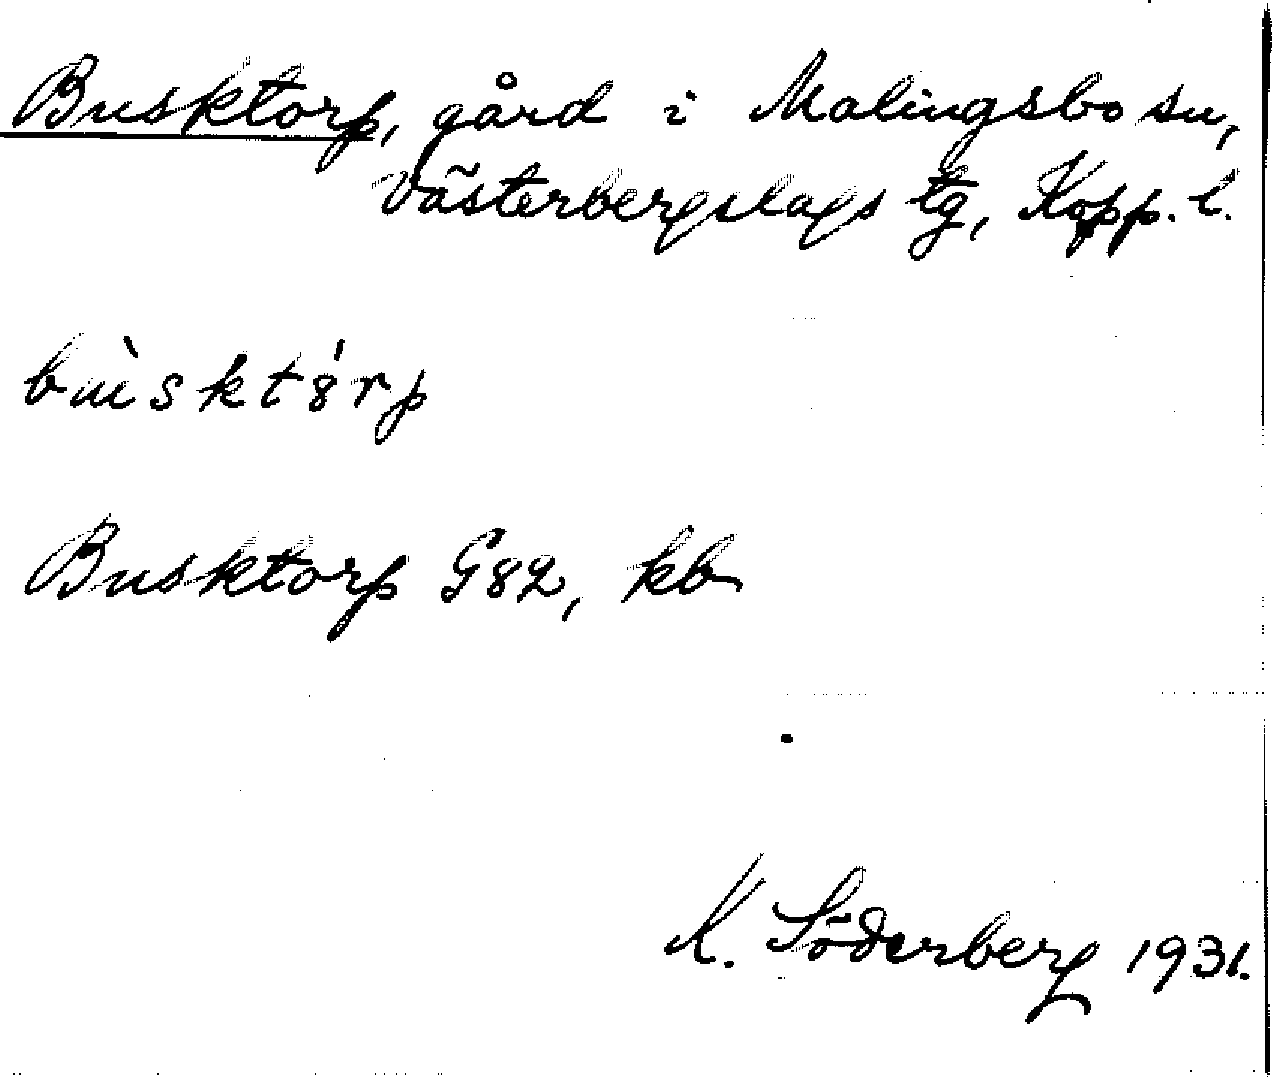 Busktorp, gård i Malingsbo sn,
Västerbergslags tg, Kopp. l.
bùsktȣ́rp
Busktorp G82, kb
K. Söderberg 1931.